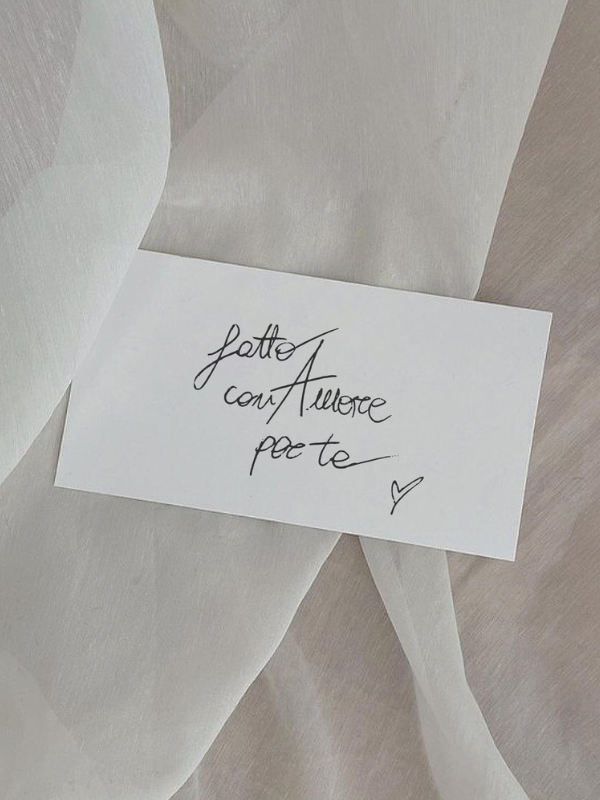 fatto
con Amore
per te